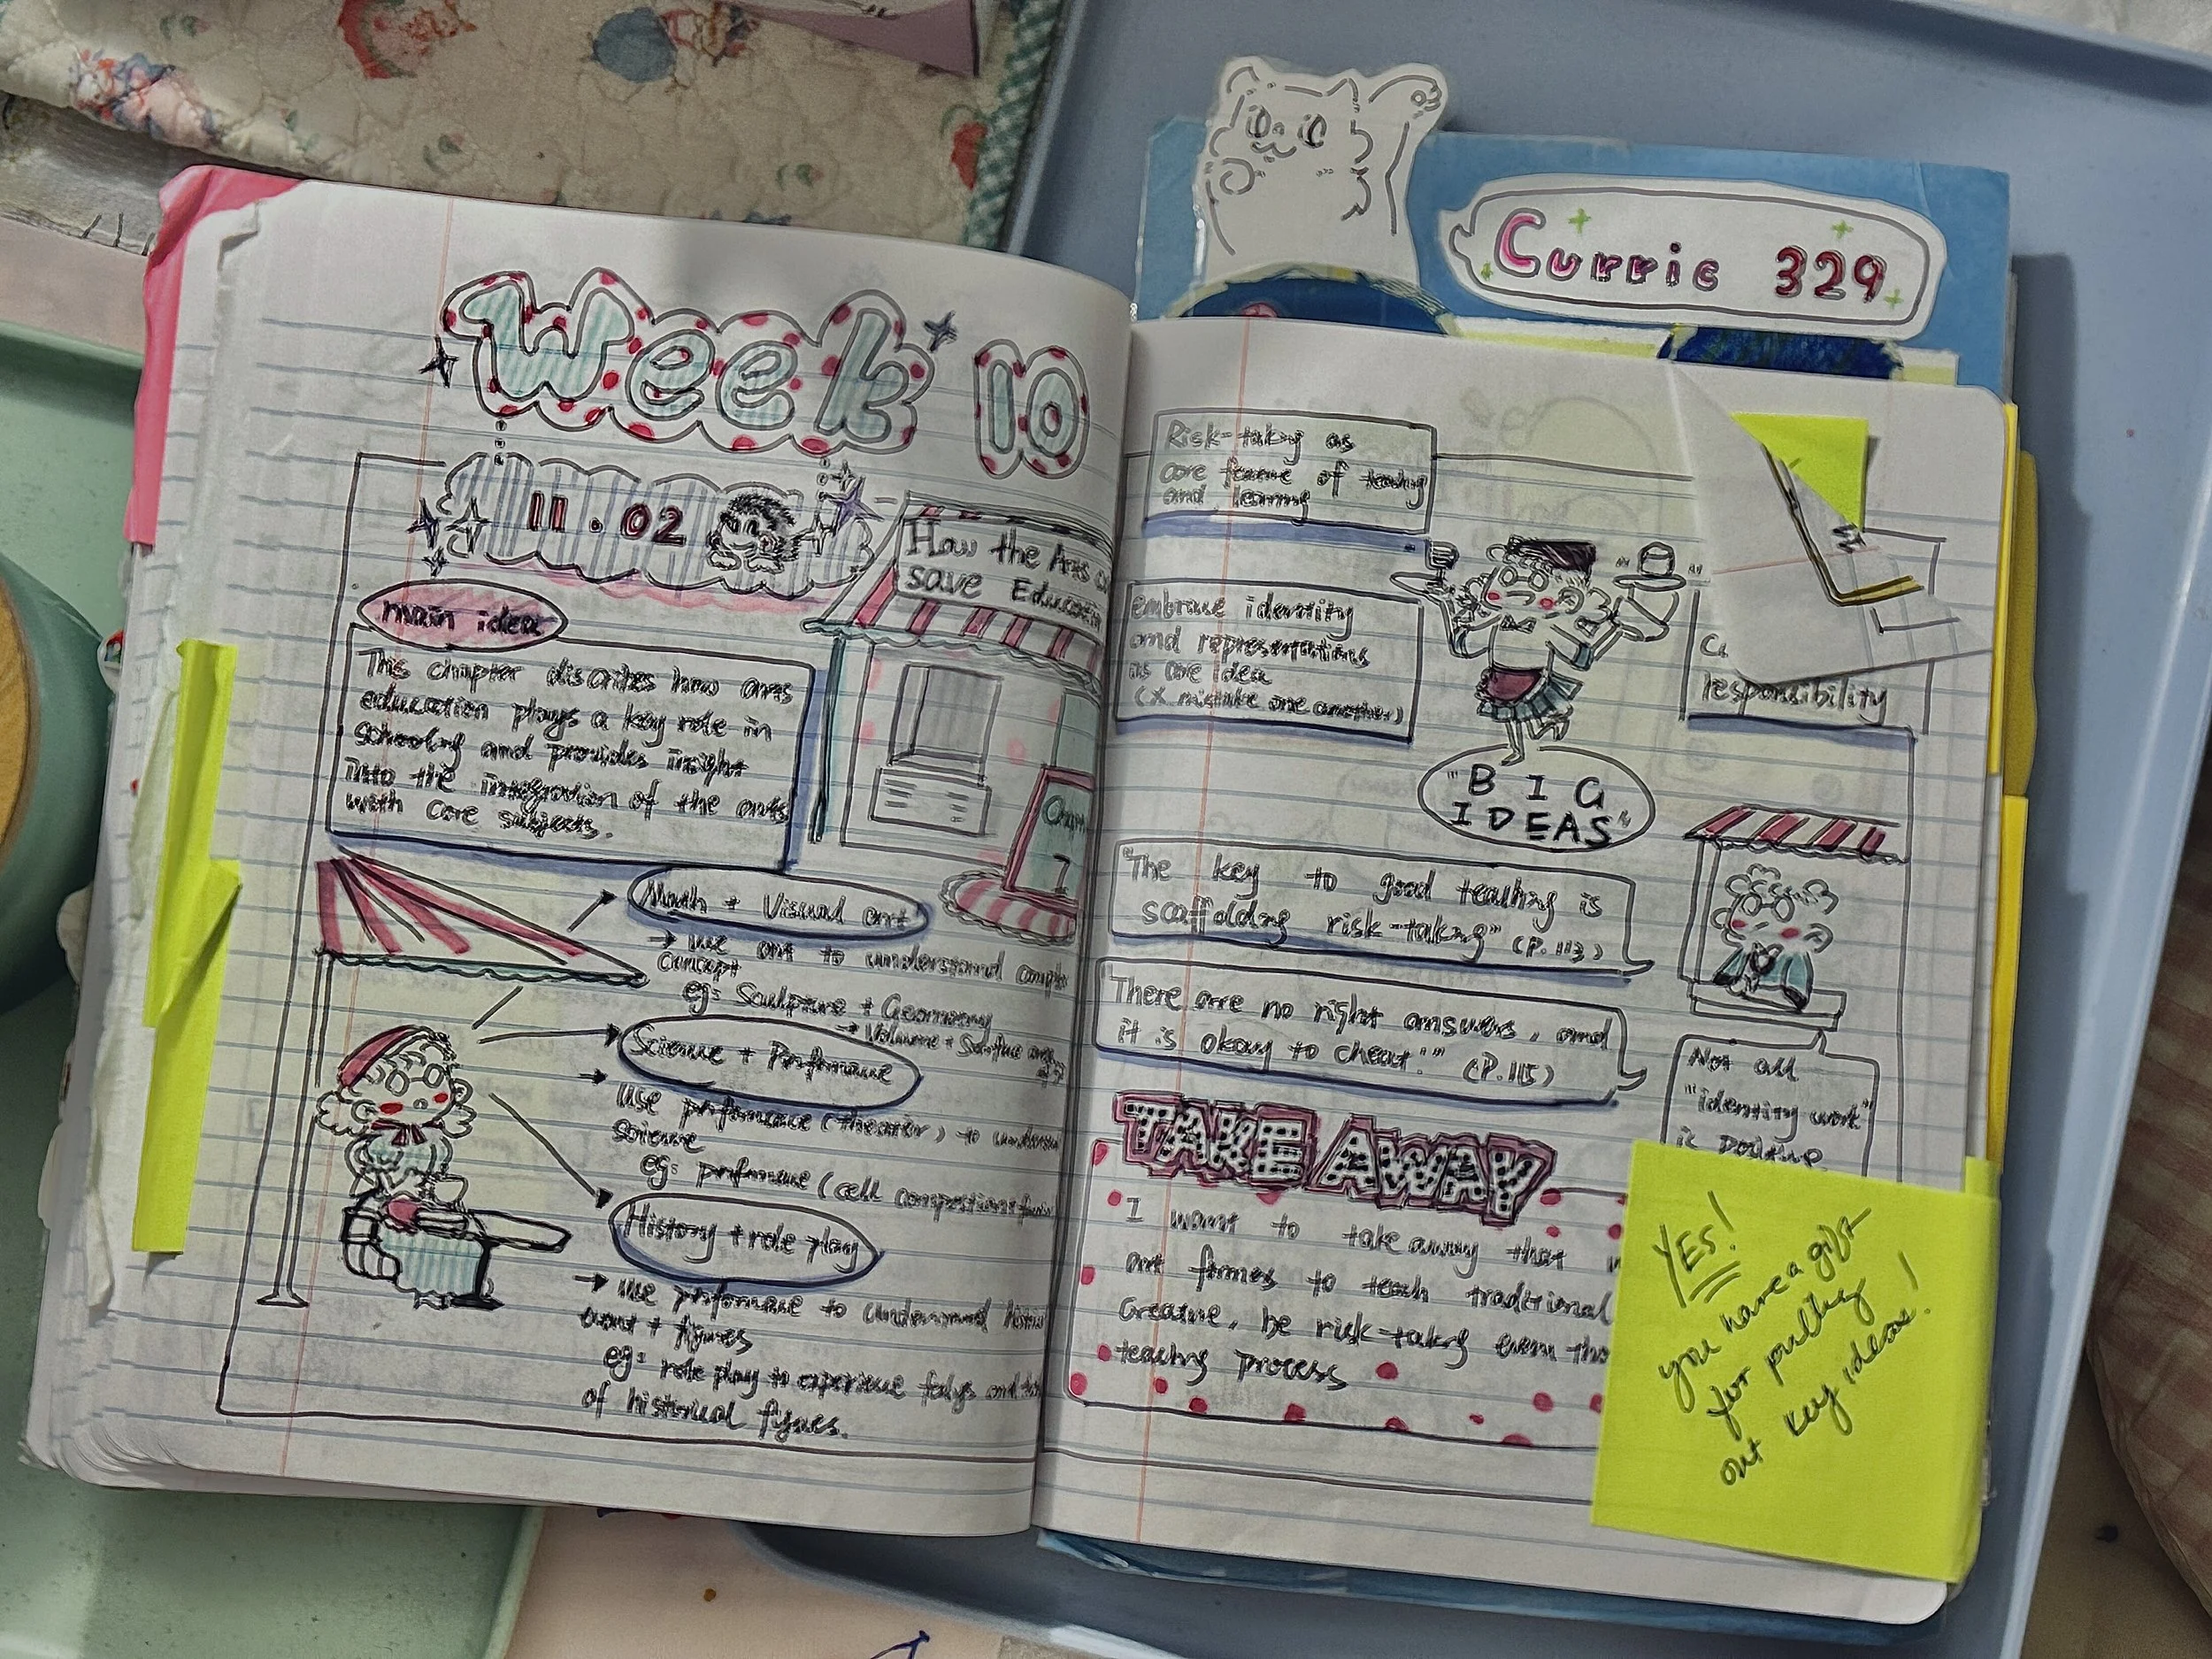 Currie 329
Week 10
11.02
How the Arts
save Education
main idea
This chapter discribes how arts
education plays a key role in
schooling and provides insight
into the integration of the arts
with core subjects.
Chapter
7
Math + Visual art
→ use art to understand
concept
eg: Sculpture + Geometry
→ Volume + Surface
Science + Performance
→ use performance (theater) to
science
eg: performance (cell
History + role play
→ use performance to understand
event + figures
eg: role play to experience and
of historical figures.
Risk-taking as
core feature of teaching
and learning
embrace identity
and representations
as core idea
(X mistake one another)
responsibility
"BIG
IDEAS"
"The key to good teaching is
scaffolding risk-taking" (P.113)
There are no right answers, and
it is okay to cheat!" (P.115)
Not all
"identity work"
is positive
TAKE AWAY
I want to take away that
art formes to teach traditional
creative, be risk-taking even
teaching process
YES!
you have a gift
for pulling
out key ideas!